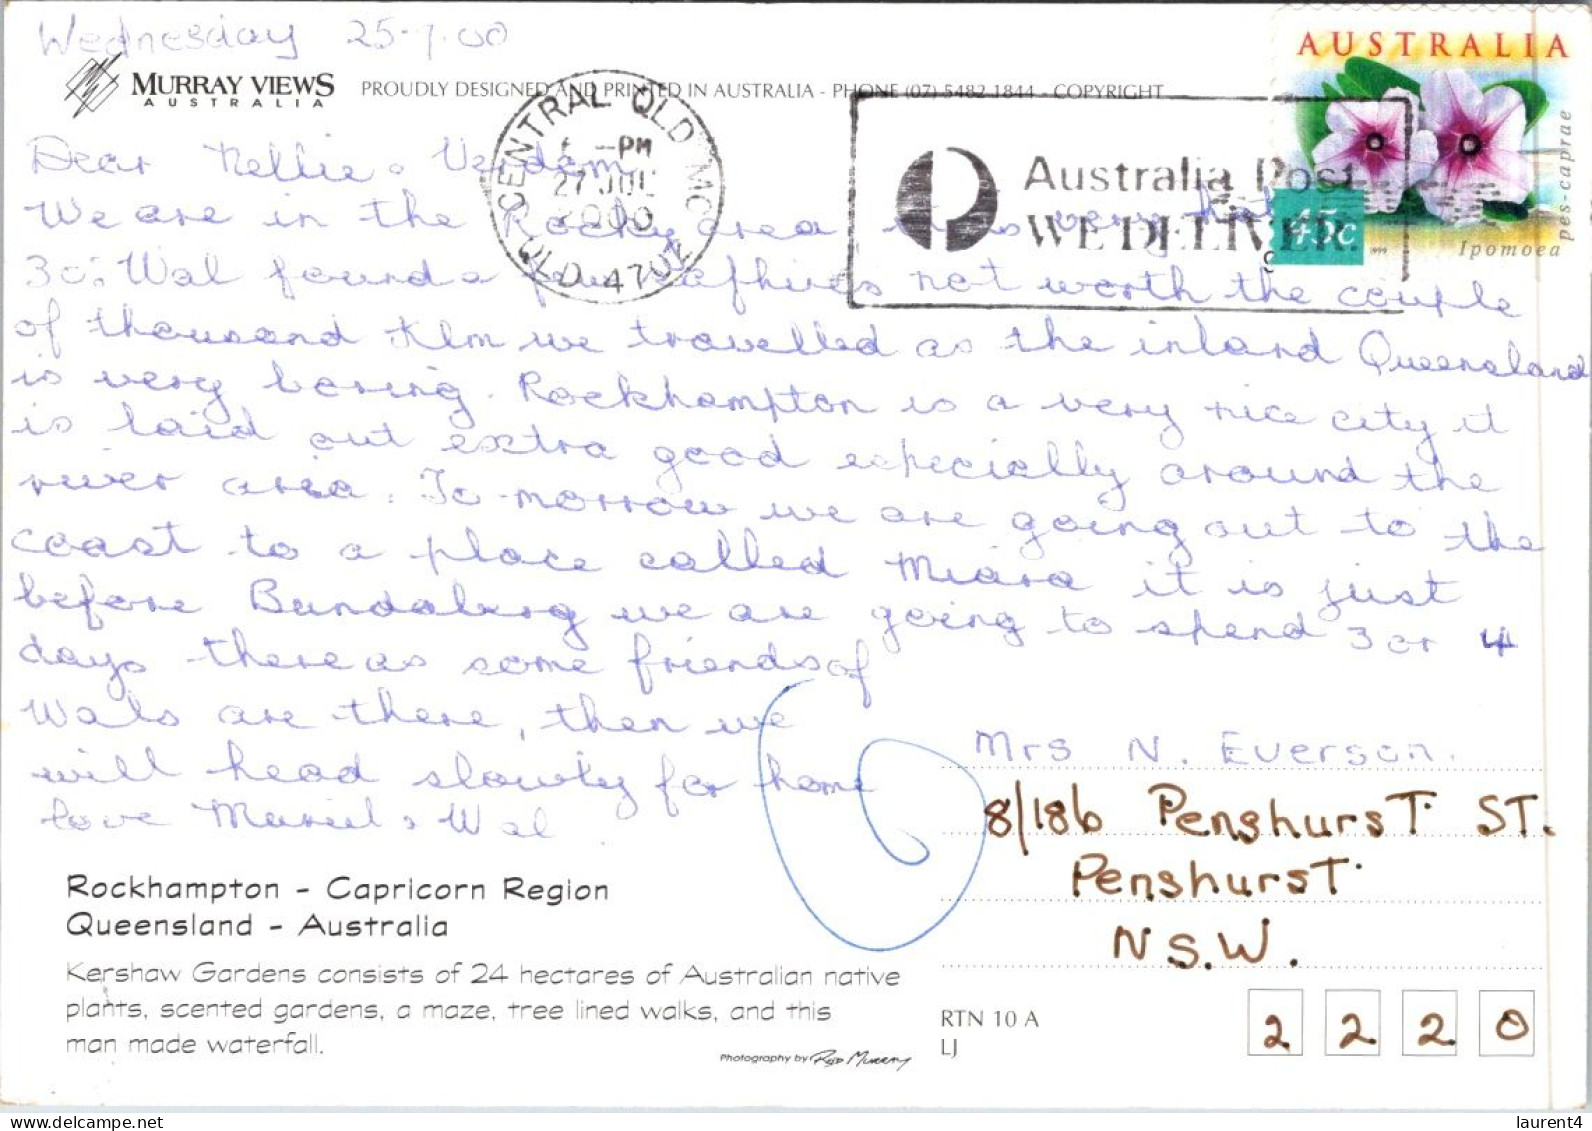 Wednesday 25-7.00
MURRAY VIEWS
AUSTRALIA
PROUDLY DESIGNED AND PRINTED IN AUSTRALIA - PHONE (07) 5482 1844 - COPYRIGHT
AUSTRALIA
pes-caprae
Ipomoea
45c
1999
CENTRAL QLD MC
PM
27 JUL
2000
QLD 470
Australia Post
WE DELIVER.
Dear Nellie &
We are in the Rocky area it is very hot
30. Wal found a few safhires not worth the couple
of thousand Klm we travelled as the inland Queensland
is very boring. Rockhampton is a very nice city it
is laid out extra good especially around the
river area. To-morrow we are going out to the
coast to a place called Miara it is just
before Bundaberg we are going to spend 3 or 4
days there as some friends of
Wals are there, then we
will head slowly for home
love Muriel & Wal
Mrs N. Everson.
8/186 Penshurst ST.
Penshurst
N.S.W.
2 2 2 0
Rockhampton - Capricorn Region
Queensland - Australia
Kershaw Gardens consists of 24 hectares of Australian native
plants, scented gardens, a maze, tree lined walks, and this
man made waterfall.
Photography by Reid Murray
RTN 10 A
LJ
laurent4